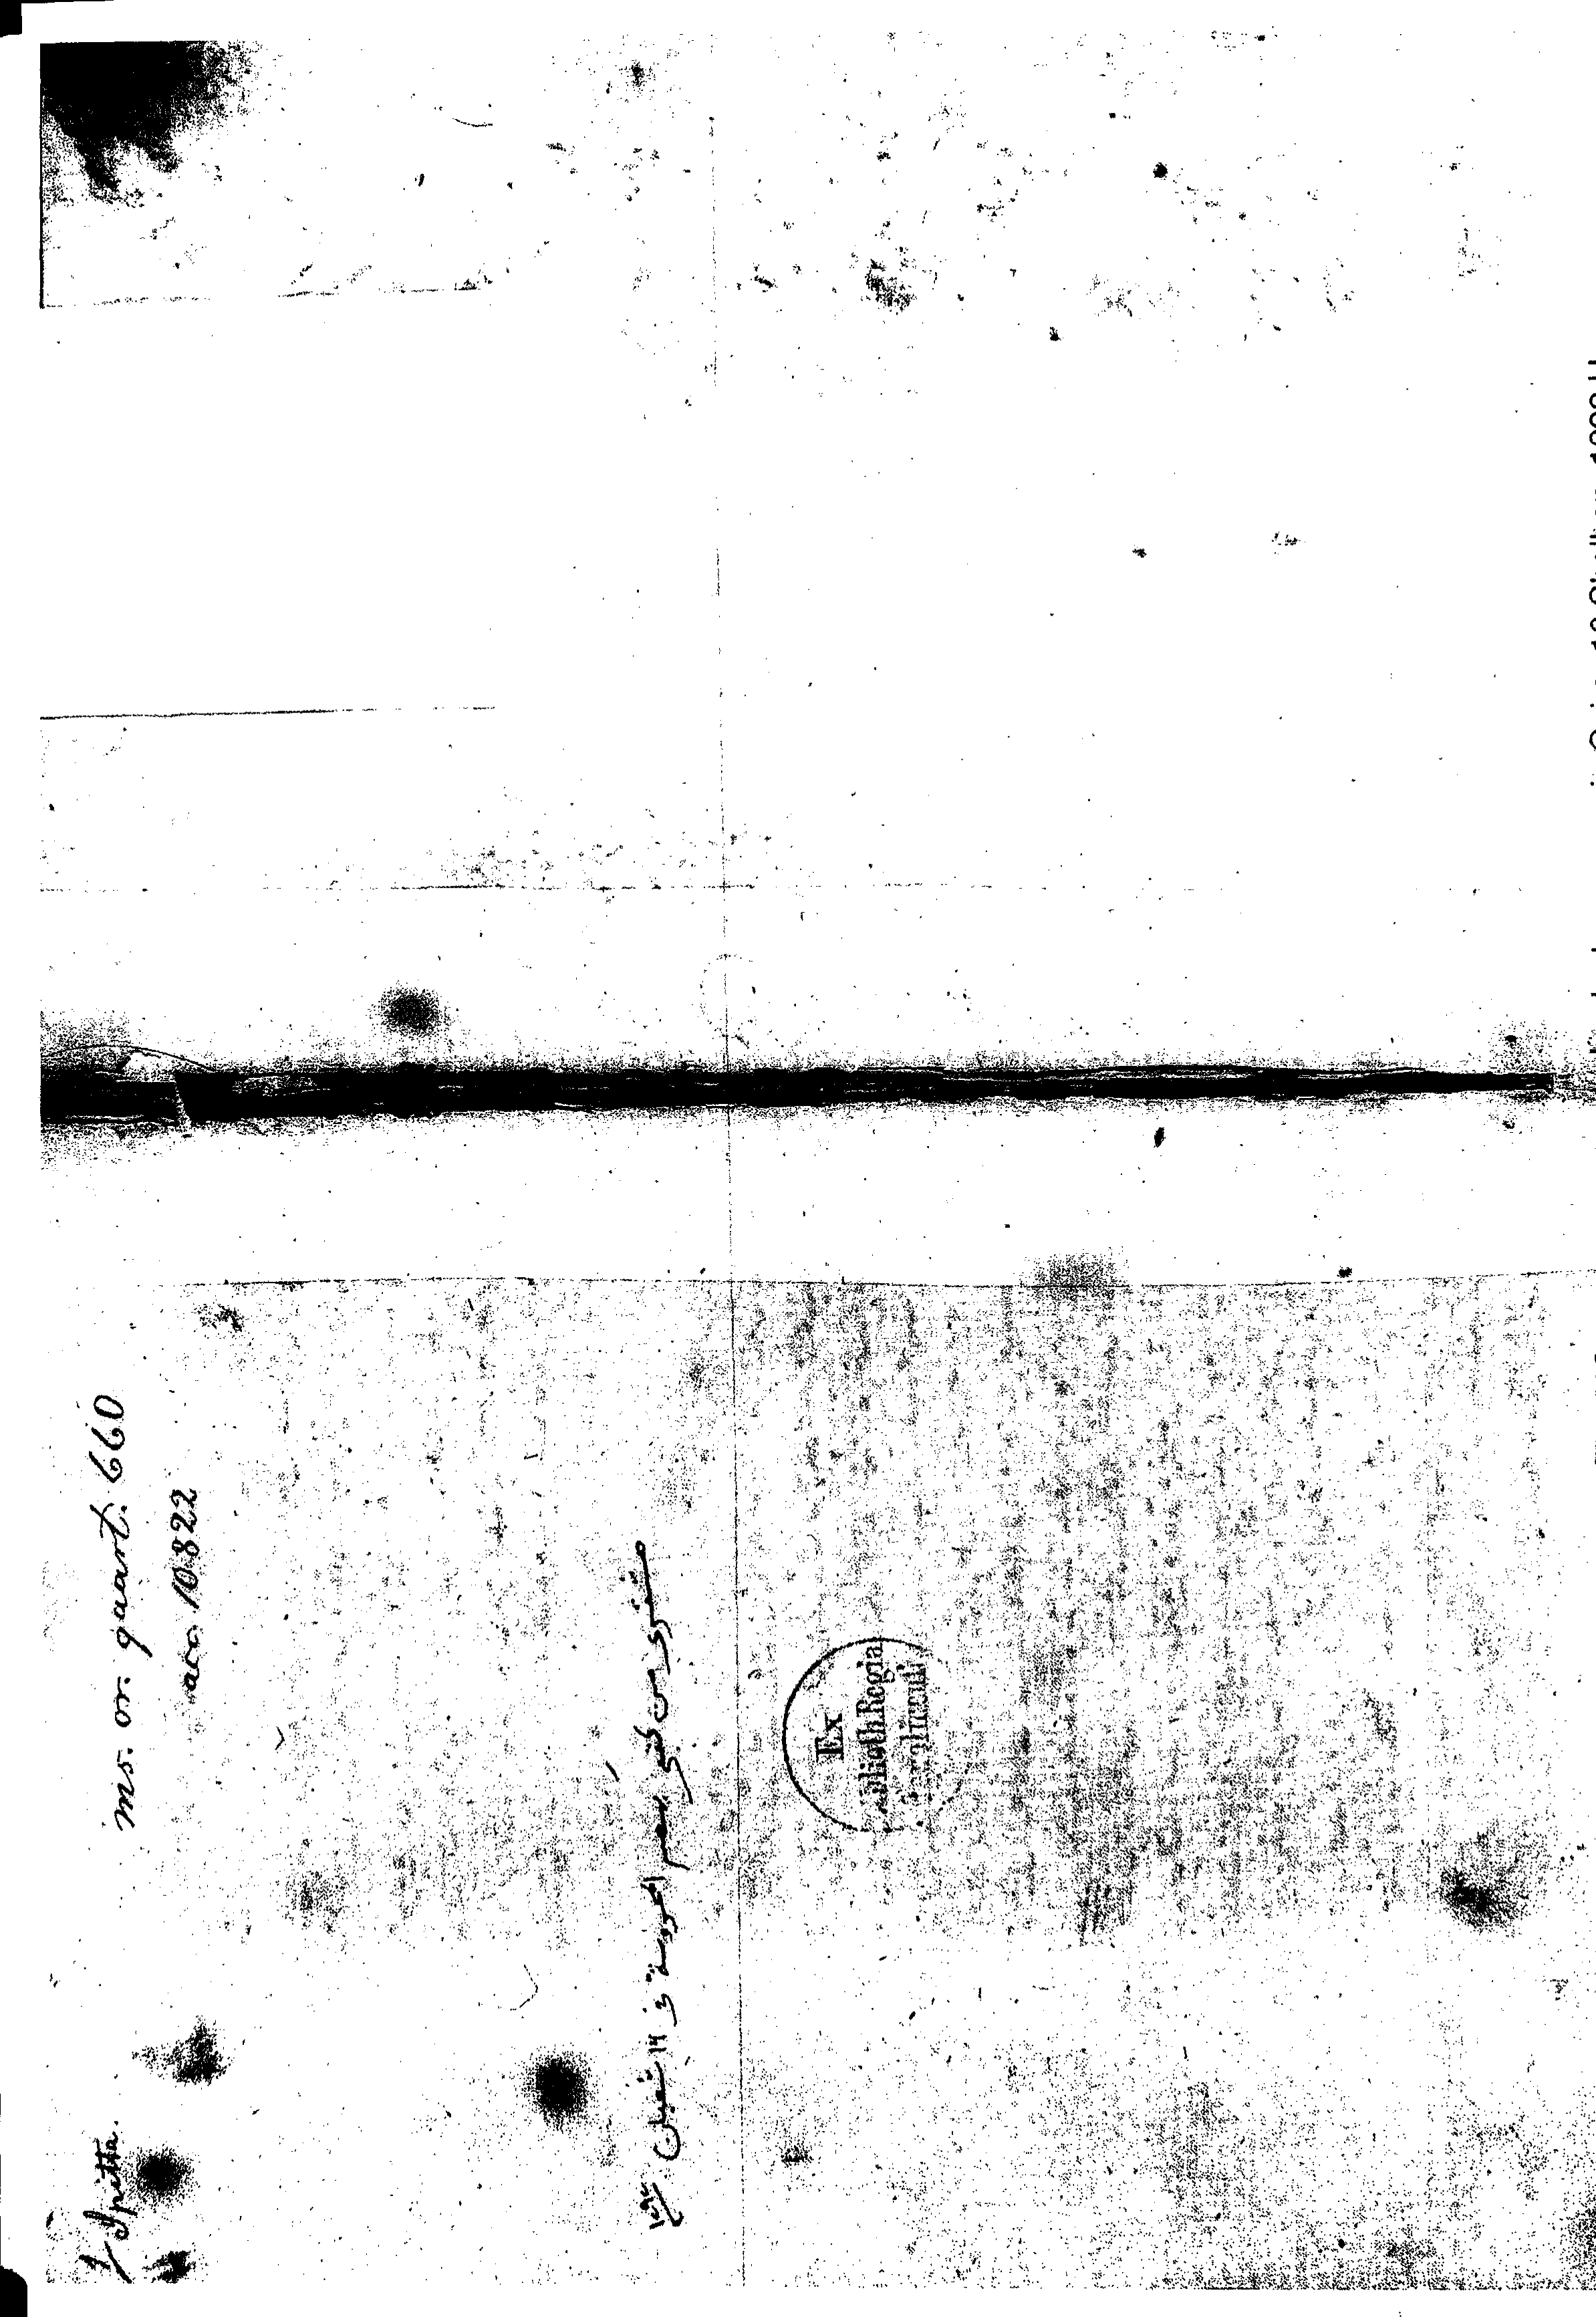 ms. or. quart. 660
acc. 10822
Spitta.
مشترى من كتبى بمصر المحروسة فى ١٦ شعبان
١٢٩٣
Ex
Biblioth. Regia
Berolinensi